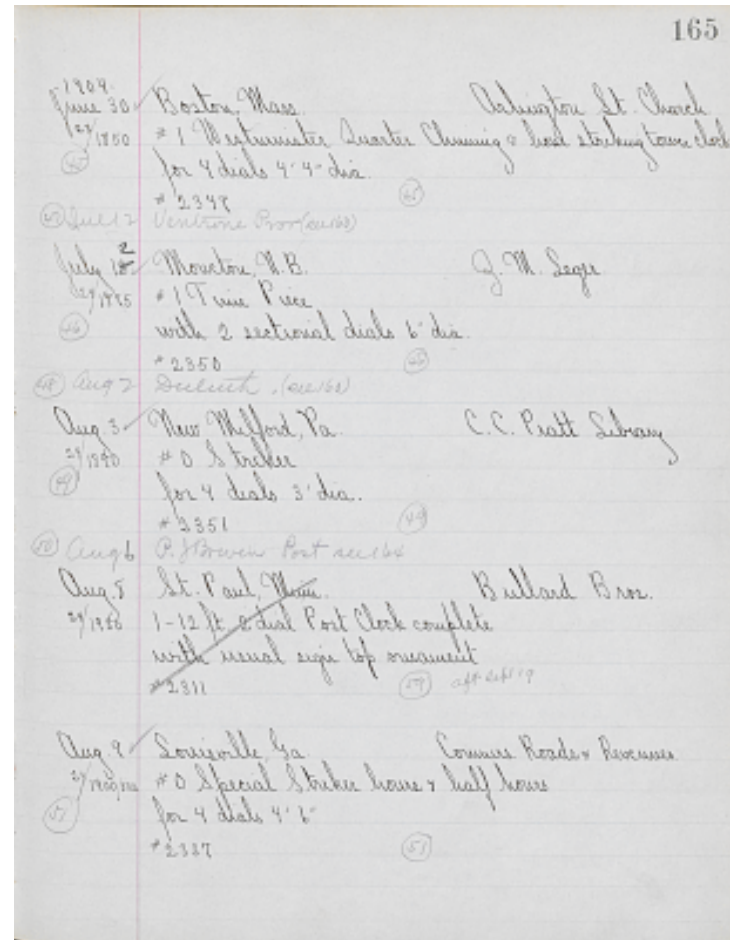 165
1909.
June 30 ✓ Boston, Mass. Arlington St. Church.
29/1850 #1 Westminster Quarter Chiming & hour striking tower clock
for 4 dials 4'-4" dia.
#2348
July 12 Ventrone Pros (see 163)
July 2 ✓ Moncton, N.B. J. M. Leger
29/1885 #1 Time Piece
46 with 2 sectional dials 6' dia.
#2350 46
48 Aug 2 Duluth. (see 162)
Aug 3 ✓ New Milford, Pa. C. C. Pratt Library
29/1890 #0 Striker
49 for 4 dials 3' dia.
#2351 49
50 Aug 6 P. J. Bowen Post see 164
Aug. 5 St. Paul, Minn. Bullard Bros.
1-12 ft. 2 dial Post Clock complete
with usual sign top ornament
#2311 59 aft Sept 19
Aug. 9 ✓ Louisville, Ga. Commrs Roads & Revenues
#0 Special Striker hours & half hours
51 for 4 dials 4'-6"
#2337 51